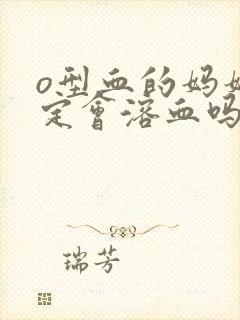 o型血的妈妈
定会溶血吗
瑞芳